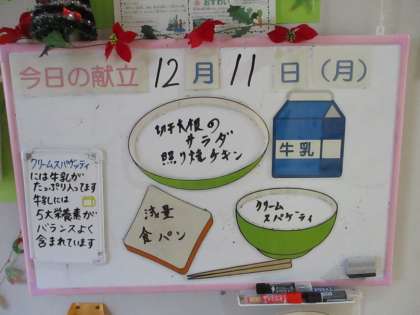 今日の献立 12月11日(月)
切干大根の
サラダ
照り焼チキン
牛乳
クリームスパゲティ
には牛乳が
たっぷり入ってます
牛乳には
5大栄養素が
バランスよく
含まれています
減量
食パン
クリーム
スパゲティ